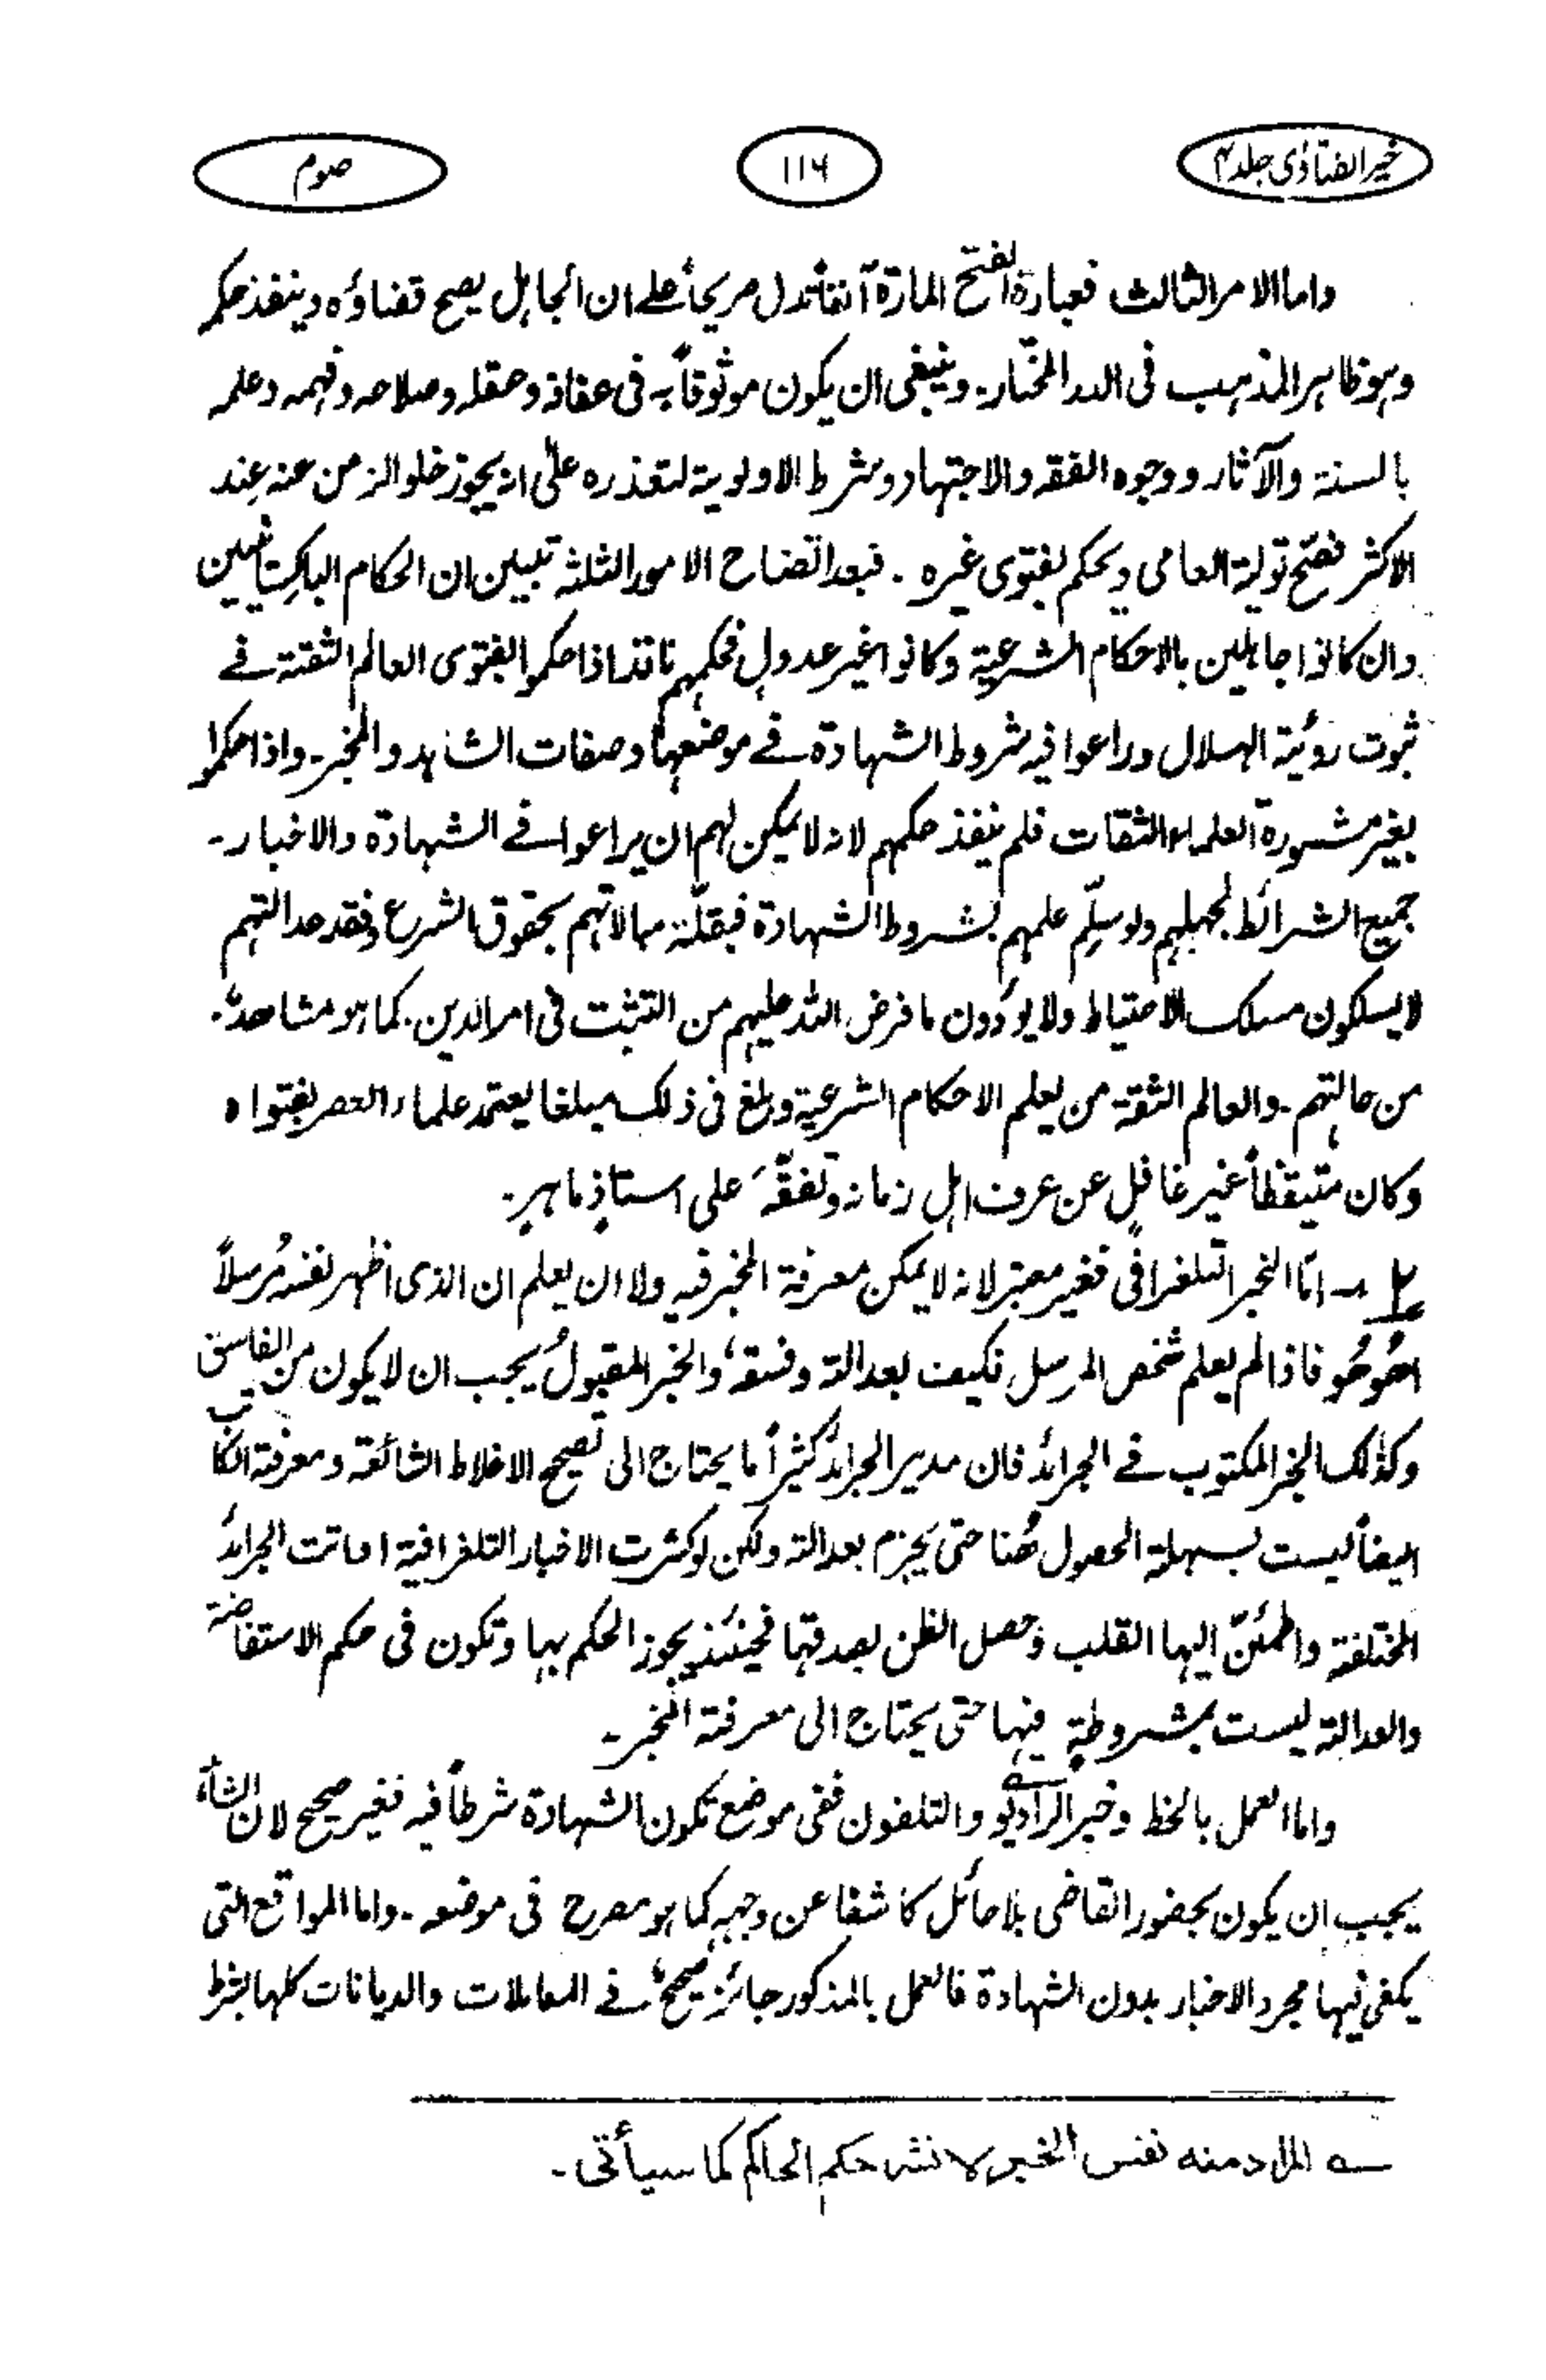 خیر الفتاوٰی جلد ۴
۱۱۶
صوم
واما الامر الثالث فعبارة الفتح المارة آنفا تدل صریحاً علے ان الجاہل یصح قضاؤہ وینفذ حکمہ
وہو ظاہر المذہب فی الدر المختار۔ وینبغی ان یکون موثوقاً بہ فی عفافہ وعقلہ وصلاحہ وفہمہ وعلمہ
بالسنۃ والآثار ووجوہ الفقہ والاجتہاد وشرط الاولویۃ لتعذرہ علیٰ انہ یجوز خلو الزمن عنہ عند
الاکثر فصح تولیۃ العامی ویحکم بفتوی غیرہ۔ فبعد اتضاح الامور الثلثۃ تبین ان الحکام الباکستانیین
وان کانوا جاہلین بالاحکام الشرعیۃ وکانوا غیر عدول فحکمہم نافذ اذا حکموا بفتوی العالم الثقۃ فے
ثبوت رؤیۃ الہلال وراعوا فیہ شروط الشہادۃ فے موضعہا وصفات الشاہد والمخبر۔ واذا حکموا
بغیر مشورۃ العلماء الثقات فلم ینفذ حکمہم لانہ لا یمکن لہم ان یراعوا فے الشہادۃ والاخبار۔
جمیع الشرائط لجہلہم ولو سلّم علمہم بشروط الشہادۃ فبقلّۃ مبالاتہم بحقوق الشرع وفقد عدالتہم
لا یسلکون مسلک الاحتیاط ولا یؤدون ما فرض اللہ علیہم من التثبت فی امر الدین۔ کما ہو مشاھدٌ۔
من حالتہم۔ والعالم الثقۃ من یعلم الاحکام الشرعیۃ وبلغ فی ذلک مبلغا یعتمد علماء العصر بفتواہ
وکان متیقظاً غیر غافلٍ عن عرف اہل زمانہ وتفقّہَ علی استاذٍ ماہرٍ۔
۲ ۔ امّا الخبر التلغرافی فغیر معتبر لانہ لا یمکن معرفۃ المخبر فیہ ولا ان یعلم ان الذی اظہر نفسہ مُرسلاً
اھُوَ ھُو فاذا لم یعلم شخص المرسل فکیف بعدالتہ وفسقہ، والخبر المقبولُ یجب ان لا یکون من الفاسق
وکذٰلک الخبر المکتوب فے الجرائد فان مدیر الجرائد کثیراً ما یحتاج الی تصحیح الاغلاط الشائعۃ ومعرفۃ الکاتب
ایضاً لیست بسہلۃ الحصول ھُنا حتی یجزم بعدالتہ ولکن لو کثرت الاخبار التلغرافیۃ او اتت الجرائد
المختلفۃ واطمئنّ الیہا القلب وحصل الظن بصدقہا فحینئذٍ یجوز الحکم بہا وتکون فی حکم الاستفاضۃ
والعدالۃ لیست بمشروطۃٍ فیہا حتی یحتاج الی معرفۃ المخبر۔
واما العمل بالخط وخبر الرادیو والتلفون ففی موضع تکون الشہادۃ شرطاً فیہ فغیر صحیح لان الشاہد
یجب ان یکون بحضور القاضی بلا حائل کاشفا عن وجہہ کما ہو مصرح فی موضعہ۔ واما المواقع التی
یکفی فیہا مجرد الاخبار بدون الشہادۃ فالعمل بالمذکور جائز صحیح، فے المعاملات والدیانات کلہا بشرط
ــہ المراد منہ نفس الخبر لا نشر حکم الحاکم کما سیأتی۔